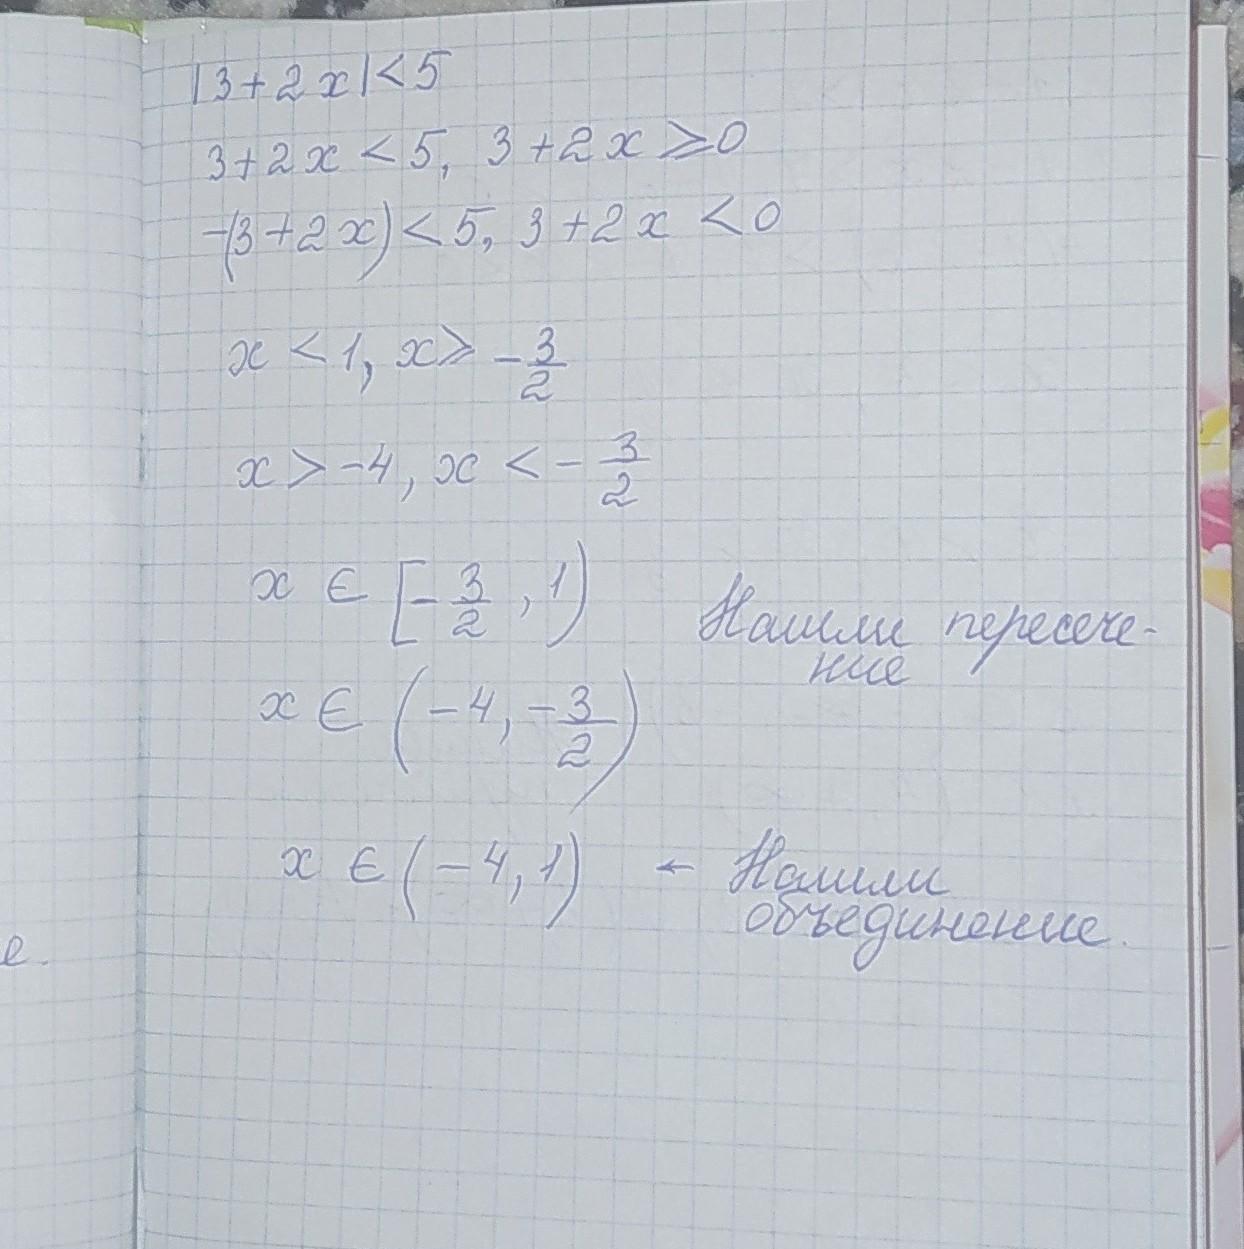 |3+2x|<5
3+2x<5, 3+2x⩾0
-(3+2x)<5, 3+2x<0
x<1, x⩾-3/2
x>-4, x<-3/2
x∈[-3/2, 1)
Нашли пересече-
ние
x∈(-4, -3/2)
x∈(-4, 1) ← Нашли
объединение.
е.